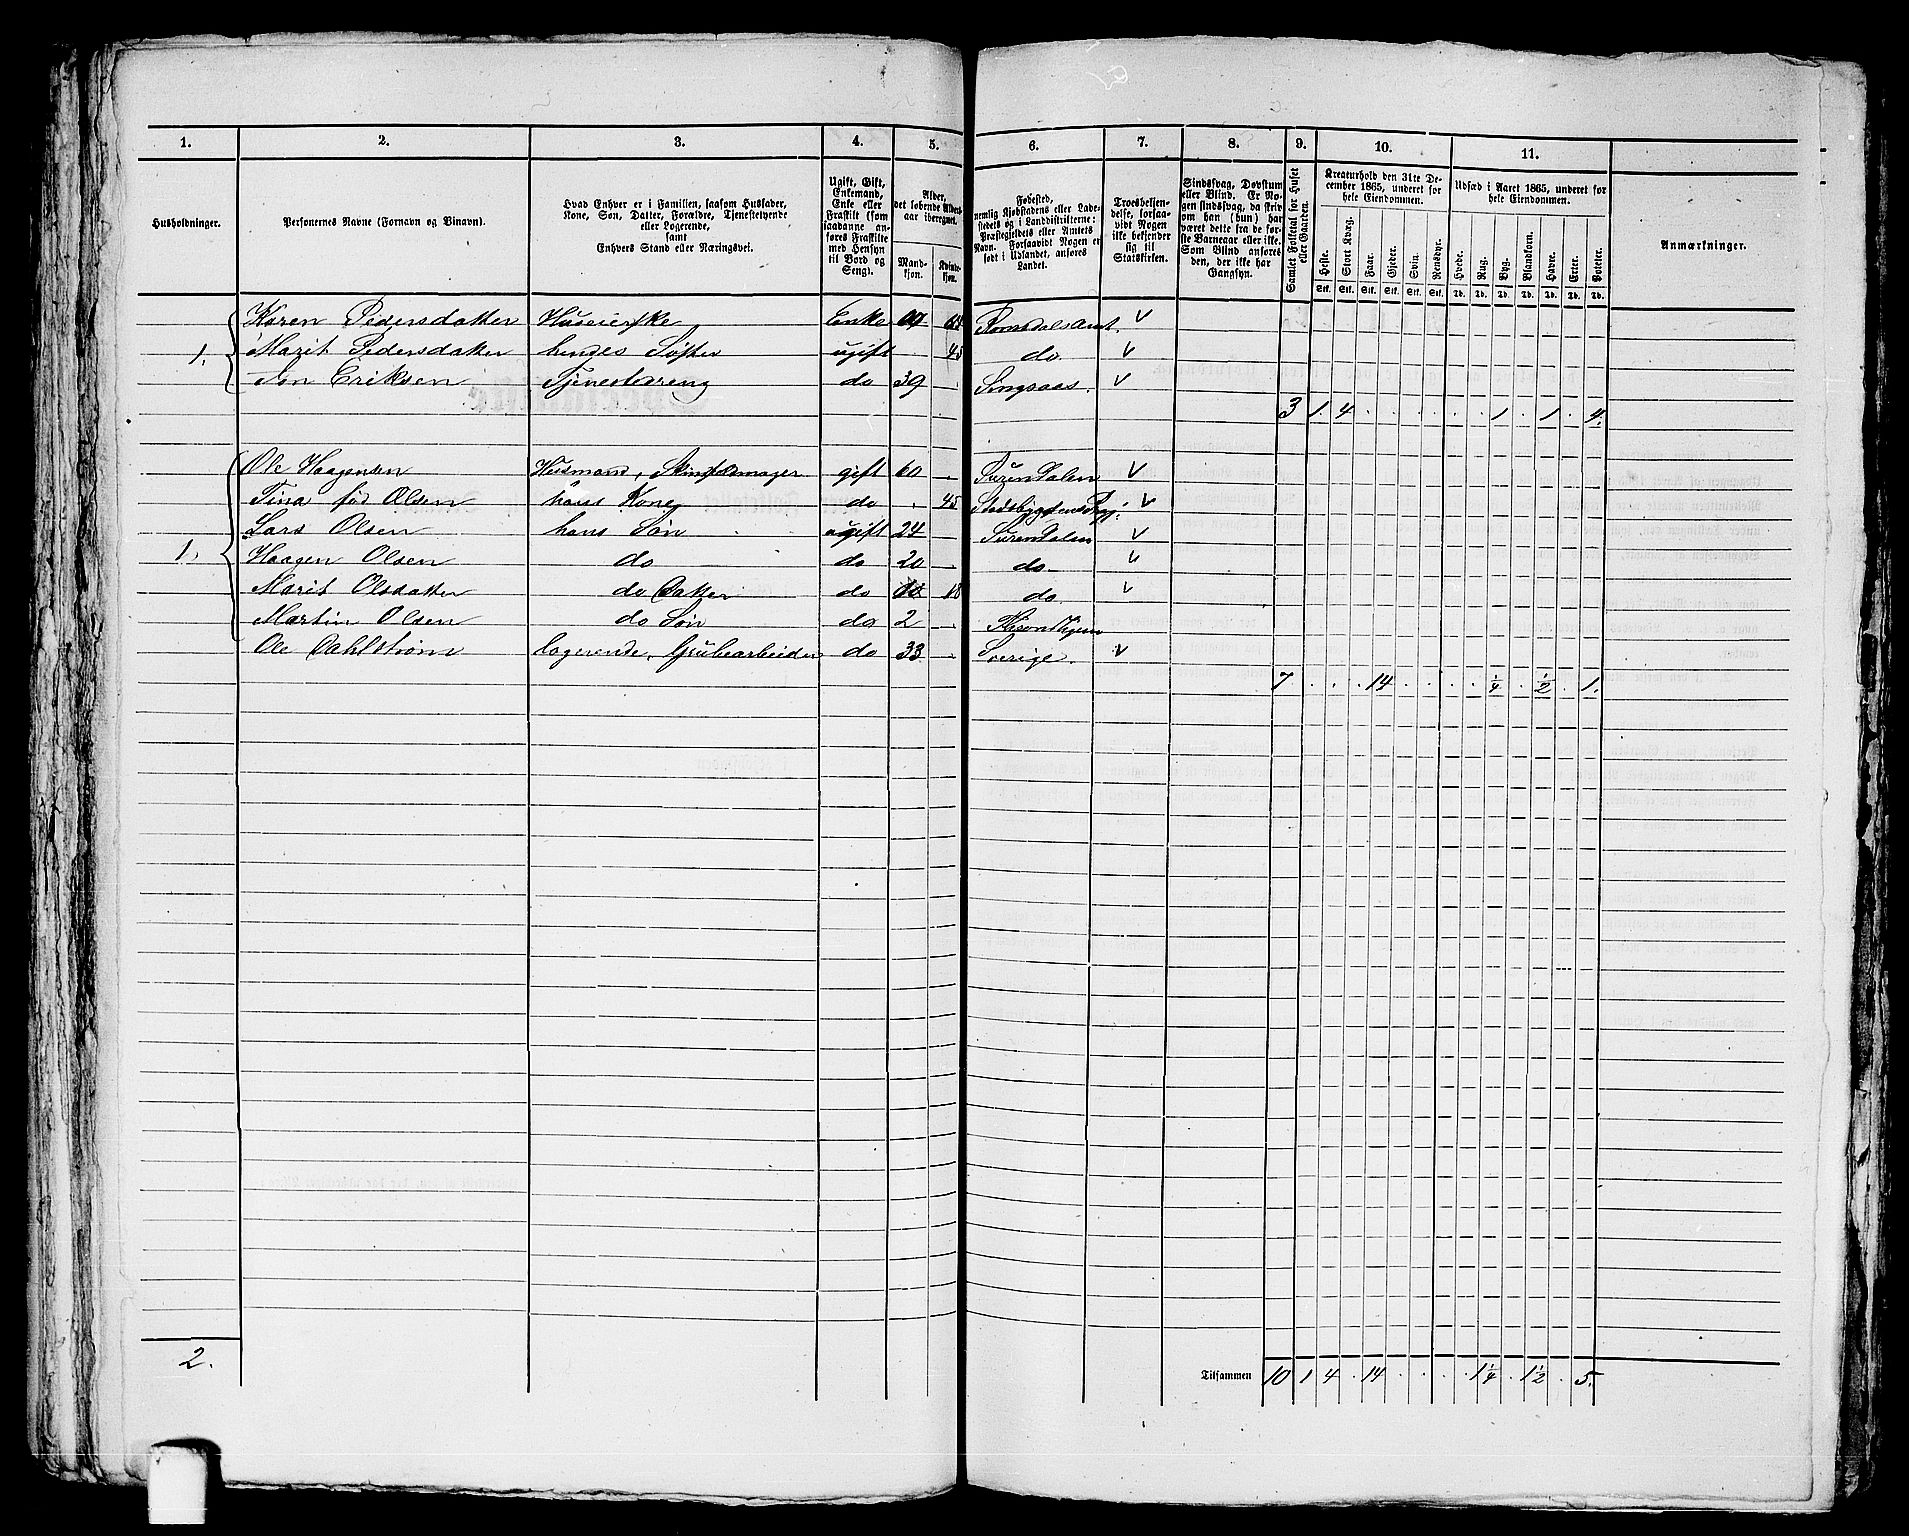 1. 2. 3. 4. 5. 6. 7. 8. 9. 10. 11.
Husholdninger.
Personernes Navne (Fornavn og Binavn).
Hvad Enhver er i Familien, saasom Husfader,
Kone, Søn, Datter, Forældre, Tjenestetyende
eller Logerende,
samt
Enhvers Stand eller Næringsvei.
Ugift, Gift,
Enkemand,
Enke eller
Fraskilt (som
saadanne an-
føres Fraskilte
med Hensyn
til Bord og
Seng).
Alder,
det løbende Alders-
aar iberegnet.
Mand-
kjøn.
Kvinde-
kjøn.
Fødested,
nemlig Kjøbstadens eller Lade-
stedets og i Landdistrikterne:
Præstegjeldets eller Amtets
Navn. Forsaavidt Nogen er
født i Udlandet, anføres
Landet.
Troesbekjen-
delse, forsaa-
vidt Nogen
ikke bekjender
sig til
Statskirken.
Sindssvag, Døvstum
eller Blind. Er No-
gen sindssvag, da skriv
om han (hun) har
været dette fra de før-
ste Barneaar eller ikke.
Som Blind anføres
den, der ikke har
Gangsyn.
Samlet Folketal for Huset
eller Gaarden.
Kreaturhold den 31te De-
cember 1865, underet for
hele Eiendommen.
Heste. Stort Kvæg. Faar. Gjeder. Svin. Rensdyr.
Stk. Stk. Stk. Stk. Stk. Stk.
Udsæd i Aaret 1865, underet for
hele Eiendommen.
Hvede. Rug. Byg. Blandkorn. Havre. Erter. Poteter.
Td. Td. Td. Td. Td. Td. Td.
Anmærkninger.
Karen Pedersdatter Huseierske Enke 64 Romsdals Amt. v
1. Marit Pedersdatter hendes Søster ugift 45 do v
Eriksen Tjenestedreng do 39 Singsaas v
3 1 4 1 1 4
Ole Haagensen Husmand, Skindfeldmager gift 60 Surendalen v
Tina fød Olsen hans Kone do 45 v
Lars Olsen hans Søn ugift 24 Surendalen v
1. Haagen Olsen do do 20 do
Marit Olsdatter do Datter do 18 do v
Martin Olsen do Søn do 2
Ole Dahlstrøm logerende, Grubearbeider do 33 Sverige v
7 14 1/4 1/2 1.
2.
Tilsammen 10 1 4 14 1 1/4 1 1/2 5.